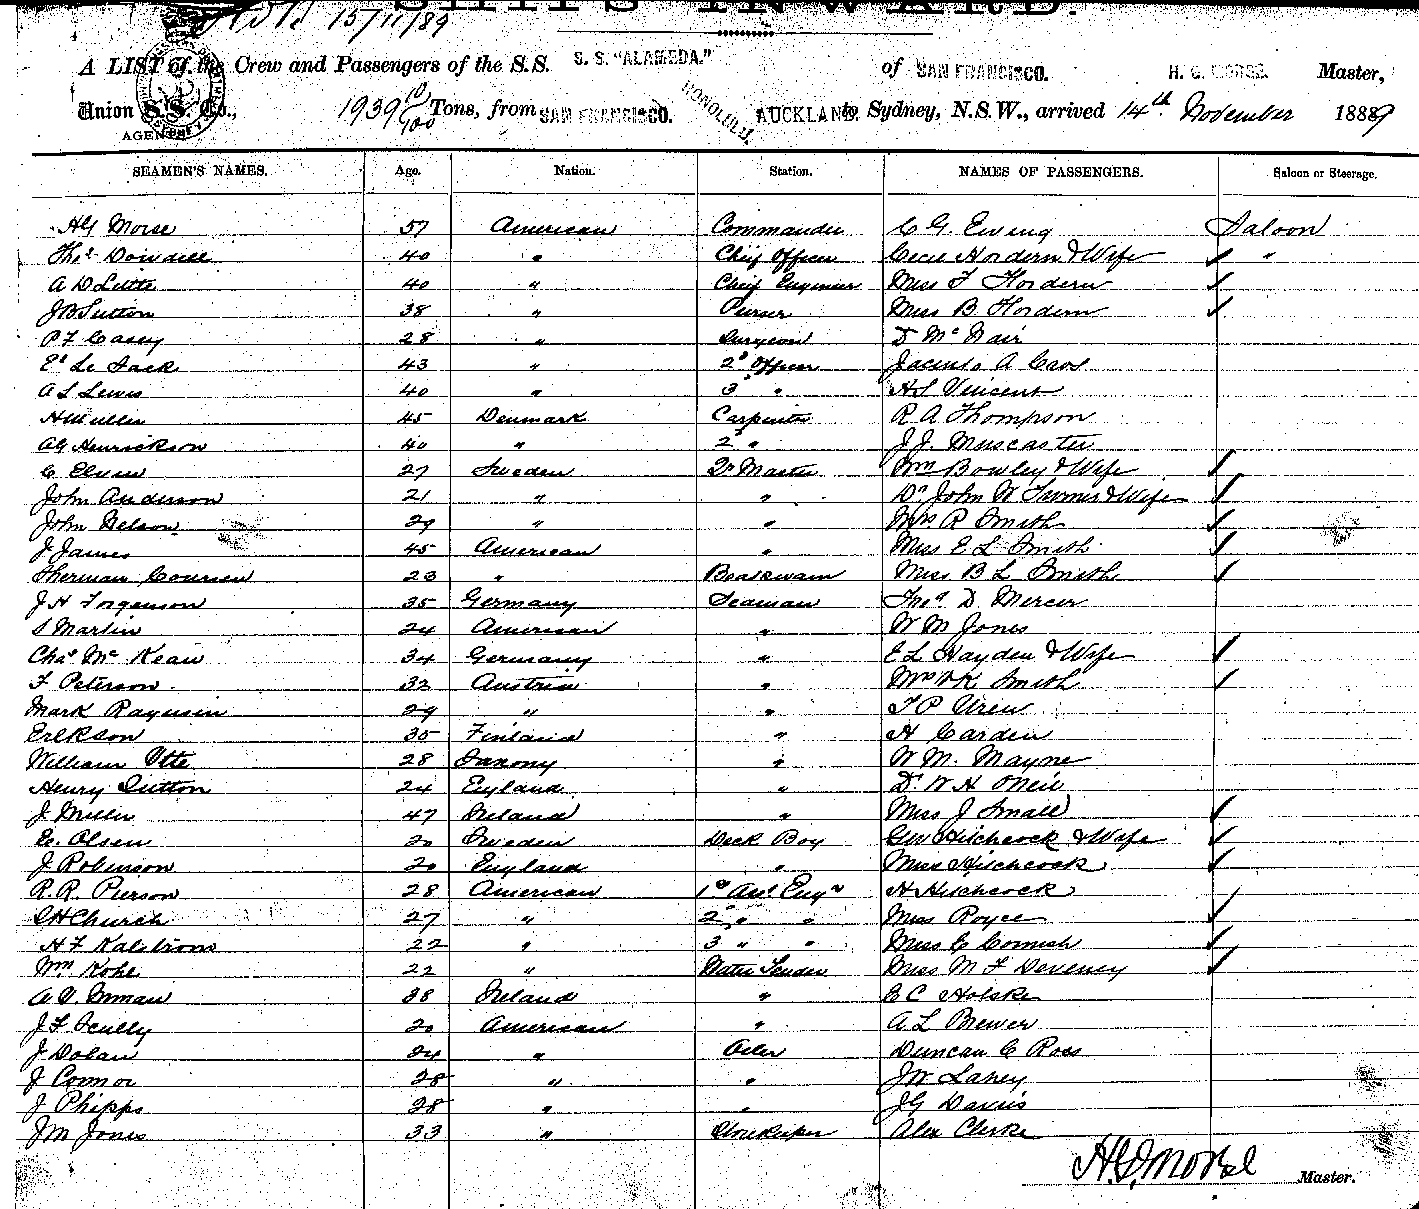 SHIPS INWARD.
15/11/89
A LIST of the Crew and Passengers of the S.S. S. S. "ALAMEDA." of SAN FRANCISCO. H. G. MORSE. Master,
Union S.S. Co., 1939 10/100 Tons, from SAN FRANCISCO. HONOLULU. AUCKLAND to Sydney, N.S.W., arrived 14th November 1889
AGENTS
SEAMEN'S NAMES. Age. Nation. Station. NAMES OF PASSENGERS. Saloon or Steerage.
HG Morse 57 American Commander C G Ewing Saloon
Thos Dowdell 40 " Chief Officer Cecil Hordern & Wife ✓ "
A D Little 40 " Chief Engineer Miss F Hordern ✓
J B Sutton 38 " Purser Miss B Hordern ✓
P F Casey 28 " Surgeon D McNair
Ed Le Jack 43 " 2d Officer Jacinto A Caos
A L Lewis 40 " 3 " H S Vincent
H Muller 45 Denmark Carpenter R A Thompson
AG Henrickson 40 " 2 " J. J. Muscaster
C 27 Sweden Qr Master Wm Bowley & Wife ✓
John Anderson 21 " " Dr John W Turner & Wife ✓
John Nelson 29 " " Mrs R Smith ✓
J James 45 American " Miss E L Smith ✓
Sherman Coursen 23 " Boatswain Miss B L Smith ✓
J H Torgenson 35 Germany Seaman Thos D. Mercer
S Martin 24 American " W M Jones
Chas McKean 34 Germany " E L Hayden & Wife ✓
F Peterson 32 Austria " Mrs W K Smith ✓
Mark Ragusin 29 " " T P Uren
Erikson 35 Finland " H Carden
William Otte 28 Saxony " W M. Mayne
Henry Sutton 24 England " Dr W H O'Neil
J Miller 47 Ireland " Miss J Small ✓
Ec. Olsen 20 Sweden Deck Boy Geo Hitchcock & Wife ✓
J Robinson 20 England " Miss Hitchcock ✓
R. R. Pierson 28 American 1st Asst Engr H Hitchcock
C H Church 27 " 2 " " Miss Royce ✓
H F Kalstrons 22 " 3 " " Miss C Cornish ✓
Wm Kohe 22 " Water Tender Miss M F Deveney ✓
A V. Inman 38 Ireland " E C Holske
J F Scully 20 American " A L Brewer
J Dolan 24 " Oiler Duncan C Ross
J Connor 28 " " J W Lahey
J Phipps 28 " " J G Davis
J M Jones 33 " Storekeeper Alex Clerke
H.G. Morse Master.